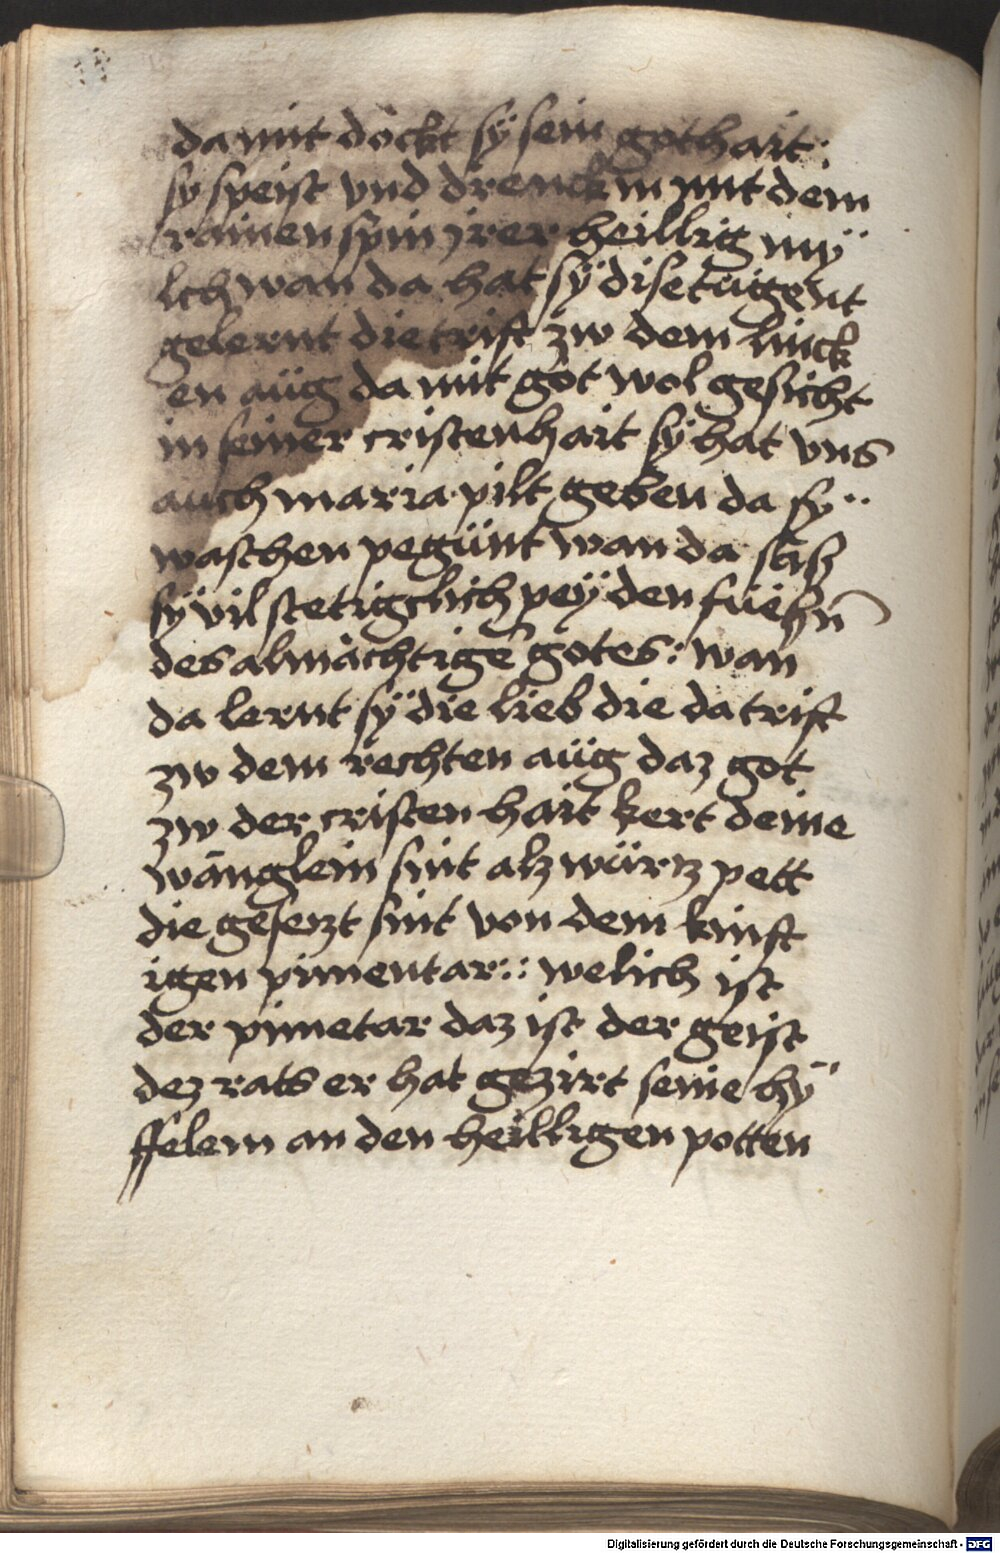 da mit döckt sÿ sein gothait :
sy speist vnd drenckt in mit dem
rainen spin jrer heillig mÿ
lch wan da hat sÿ dise tügent
gelernt die trift zw dem linck
en aüg da mit got wol gesicht
in seiner cristenhait sÿ hat vns
auch maria pilt geben da sy ..
waschen pegünt wan da sas
sÿ vil stetigclich peÿ den füeßn̄
des almächtigē gotes : wan
da lernt sÿ die lieb die da trift
zw dem rechten aüg daz got
zw der cristenhait kert deine
wänglein sint alz würtz pett
die gesetzt sint von dem kinft
igen pimentar :: welich ist
der pimetar daz ist der geist
dez rats er hat gezirt seine hÿ
ffelem an den heilligen potten
Digitalisierung gefördert durch die Deutsche Forschungsgemeinschaft - DFG